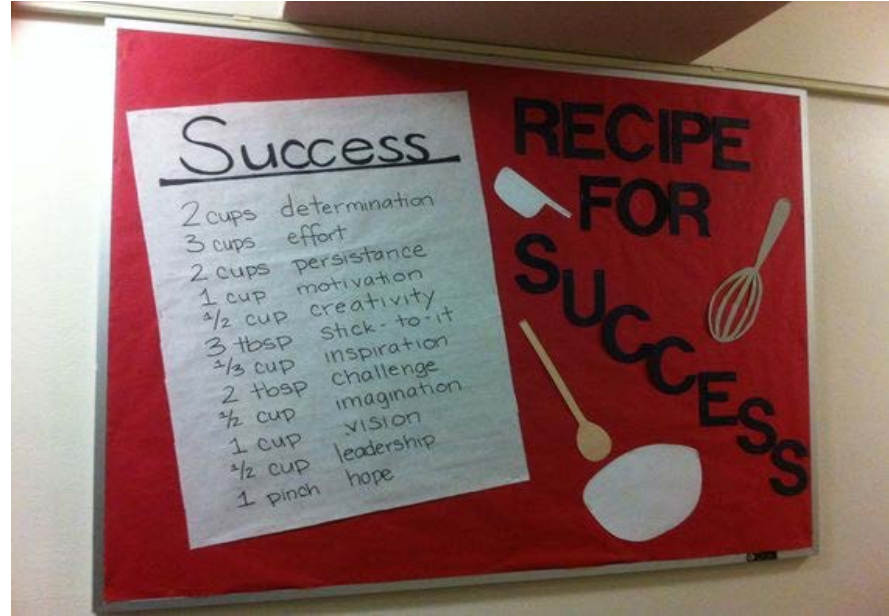 Success
2 cups determination
3 cups effort
2 cups persistance
1 cup motivation
1/2 cup creativity
3 tbsp stick-to-it
1/3 cup inspiration
2 tbsp challenge
1/2 cup imagination
1 cup vision
1/2 cup leadership
1 pinch hope
RECIPE
FOR
SUCCESS